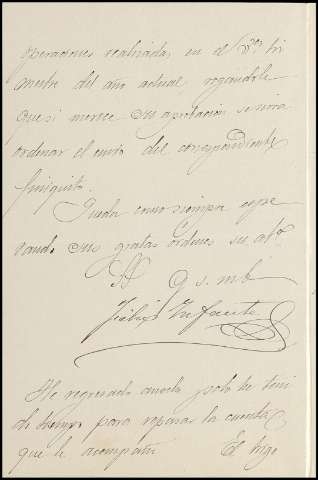 operaciones realizadas en el tri
mestre del año actual rogandole
que si merece su aprobación se sirva
ordenar el envio del correspondiente
finiquito.
Queda como siempre espe
rando sus gratas órdenes su afº
q s. m b
Infante
He regresado anoche solo he teni
do tiempo para repasar la cuenta
que le acompaña